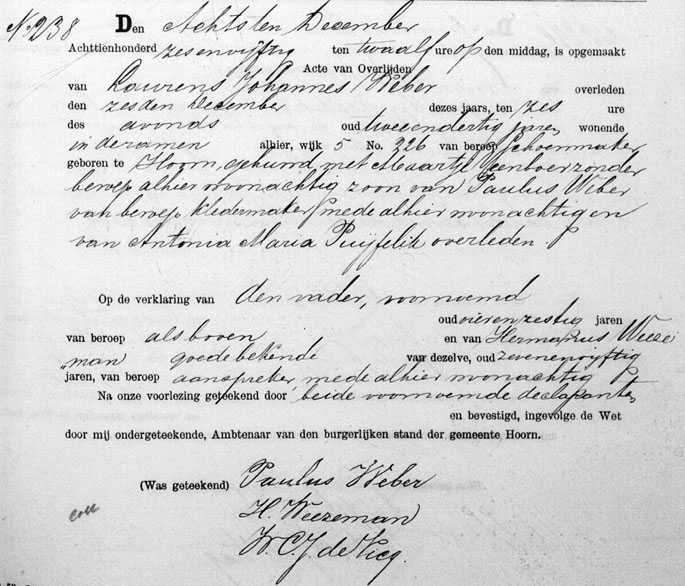 No. 238 Den Achtsten December
Achttienhonderd zesenvijftig ten twaalf ure op den middag, is opgemaakt
Acte van Overlijden
van Laurens Johannes Weber overleden
den zesden December dezes jaars, ten zes ure
des avonds oud tweeendertig jaren wonende
in de ramen alhier, wijk 5 No. 226 van beroep Schoenmaker
geboren te Hoorn, gehuwd met Maartje Veenboer zonder
beroep alhier woonachtig zoon van Paulus Weber
van beroep kledermaker mede alhier woonachtig en
van Antonia Maria Puijfelik overleden
Op de verklaring van den vader, voornoemd
oud vierenzestig jaren
van beroep als boven en van Hermanus Weeze
"man goede bekende van dezelve, oud zevenenvijftig
jaren, van beroep aanspreker mede alhier woonachtig
Na onze voorlezing geteekend door beide voornoemde declaranten
en bevestigd, ingevolge de Wet
door mij ondergeteekende, Ambtenaar van den burgerlijken stand der gemeente Hoorn.
(Was geteekend) Paulus Weber
H. Weezeman
W. C. J. de Vicq
coll